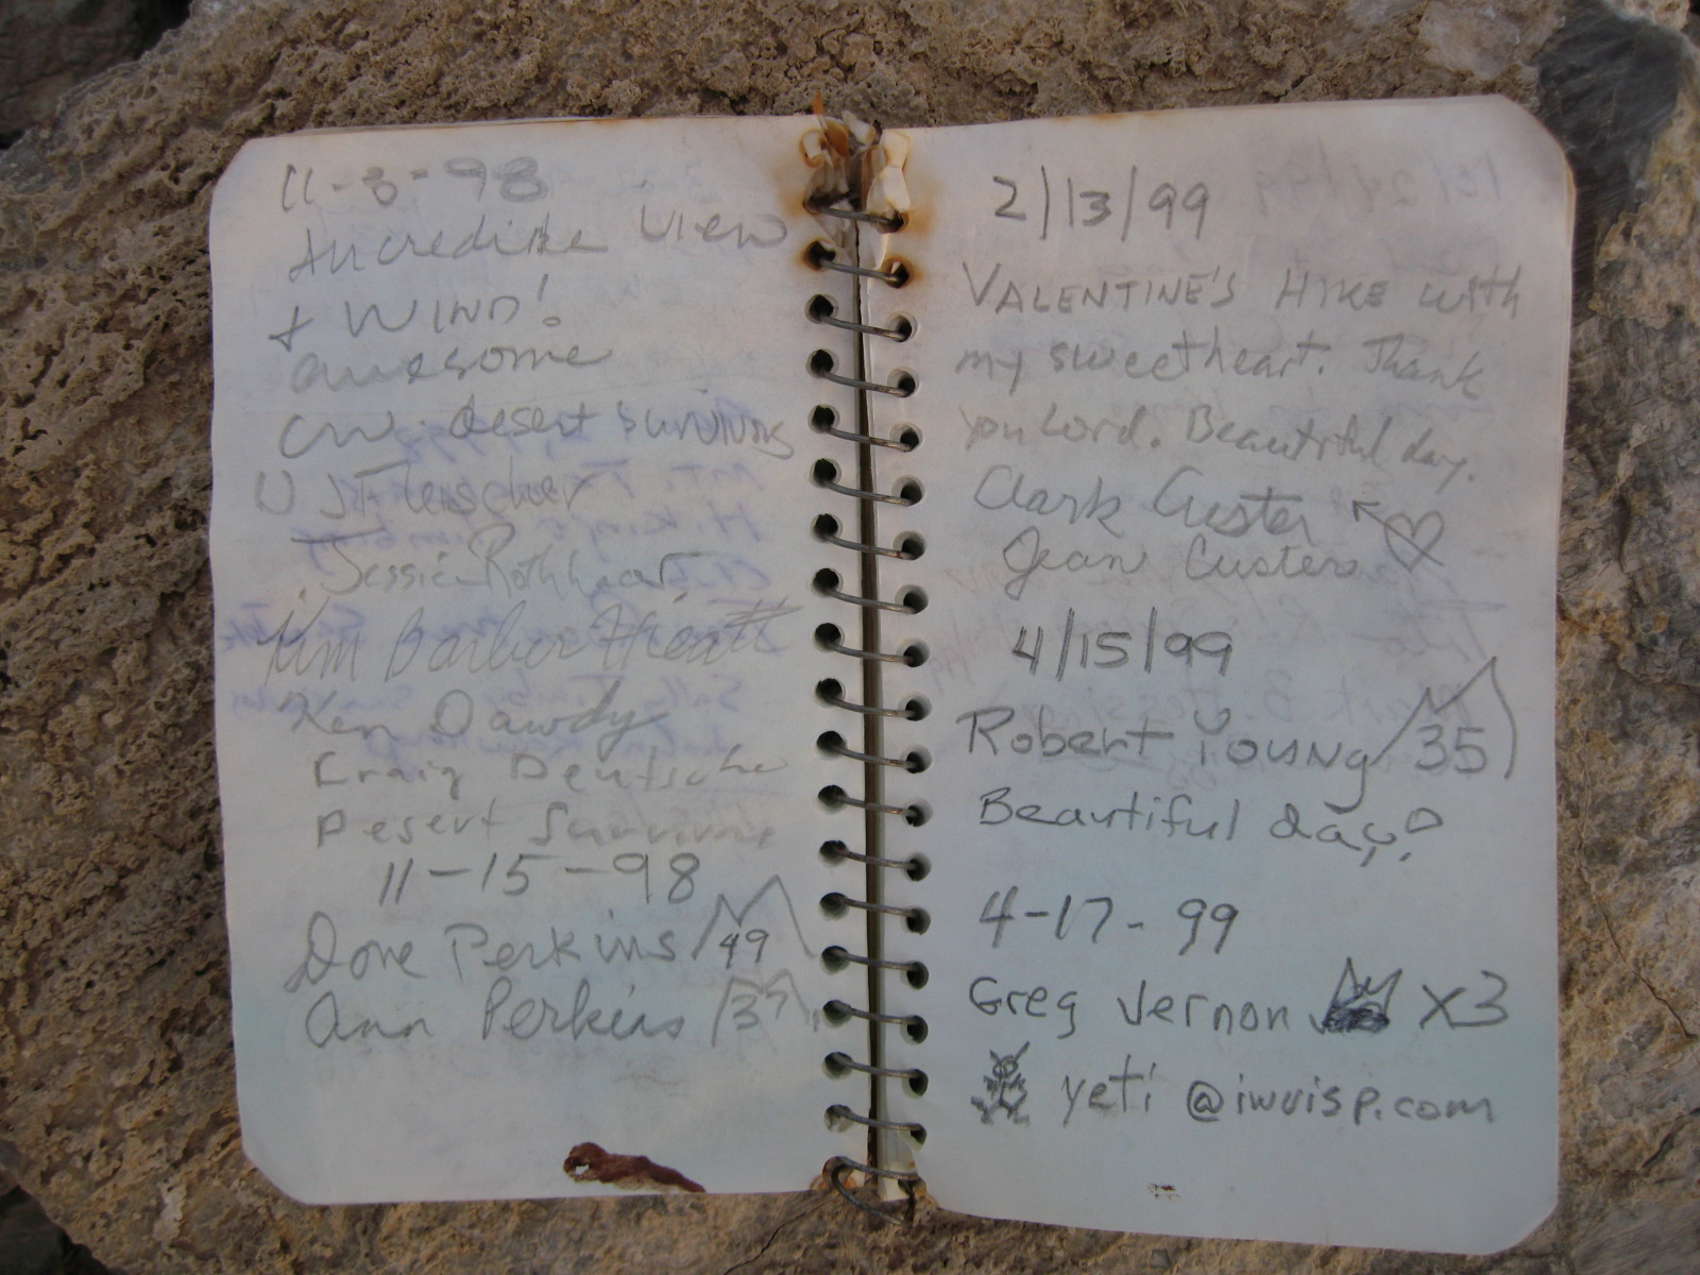 11-8-98
Incredible view
+ WIND!
awesome
desert survivors
Jessie Rothheart
Kim Barber Hieatt
Ken Dawdy
Craig Deutsche
Desert Survivors
11-15-98
Dove Perkins 49
Ann Perkins 37
2/13/99
VALENTINE'S HIKE with
my sweetheart. Thank
you Lord. Beautiful day.
Clark Custer
Jean Custer
4/15/99
Robert Young 35
Beautiful day!
4-17-99
Greg Vernon x3
yeti @iwvisp.com